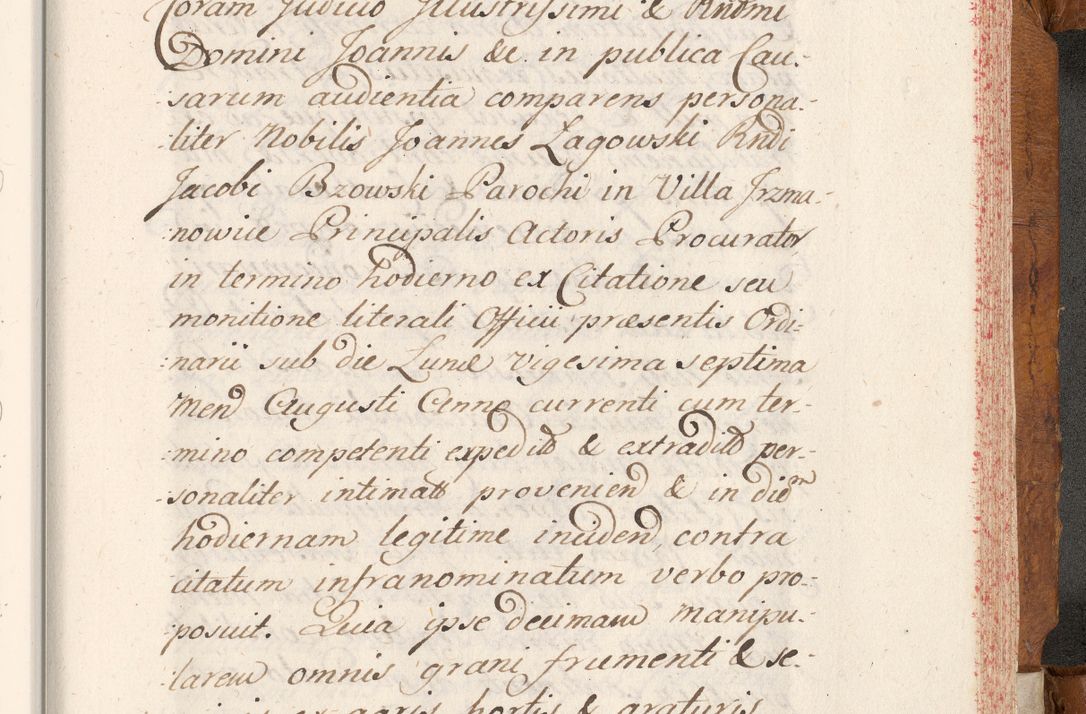 Coram Judicio Jllustrissimi & Rndmi
Domini Joannis &c. in publica Cau-
sarum audientia comparens persona-
liter Nobilis Joannes Łagowski Rndi
Jacobi Bzowski Parochi in Villa Jrzma-
nowice Principalis Actoris Procurator
in termino hodierno ex Citatione seu
monitione literali Officii præsentis Ordi-
narii sub die Lunæ vigesima septima
Mens Augusti Anno currenti cum ter-
mino competenti expedito & extradito per-
sonaliter intimato provenien & in diem
hodiernam legitime inciden, contra
citatum infranominatum verbo pro-
posuit. Quia ipse decimam manipu-
larem omnis grani frumenti & se-
ex agris hortis & araturis